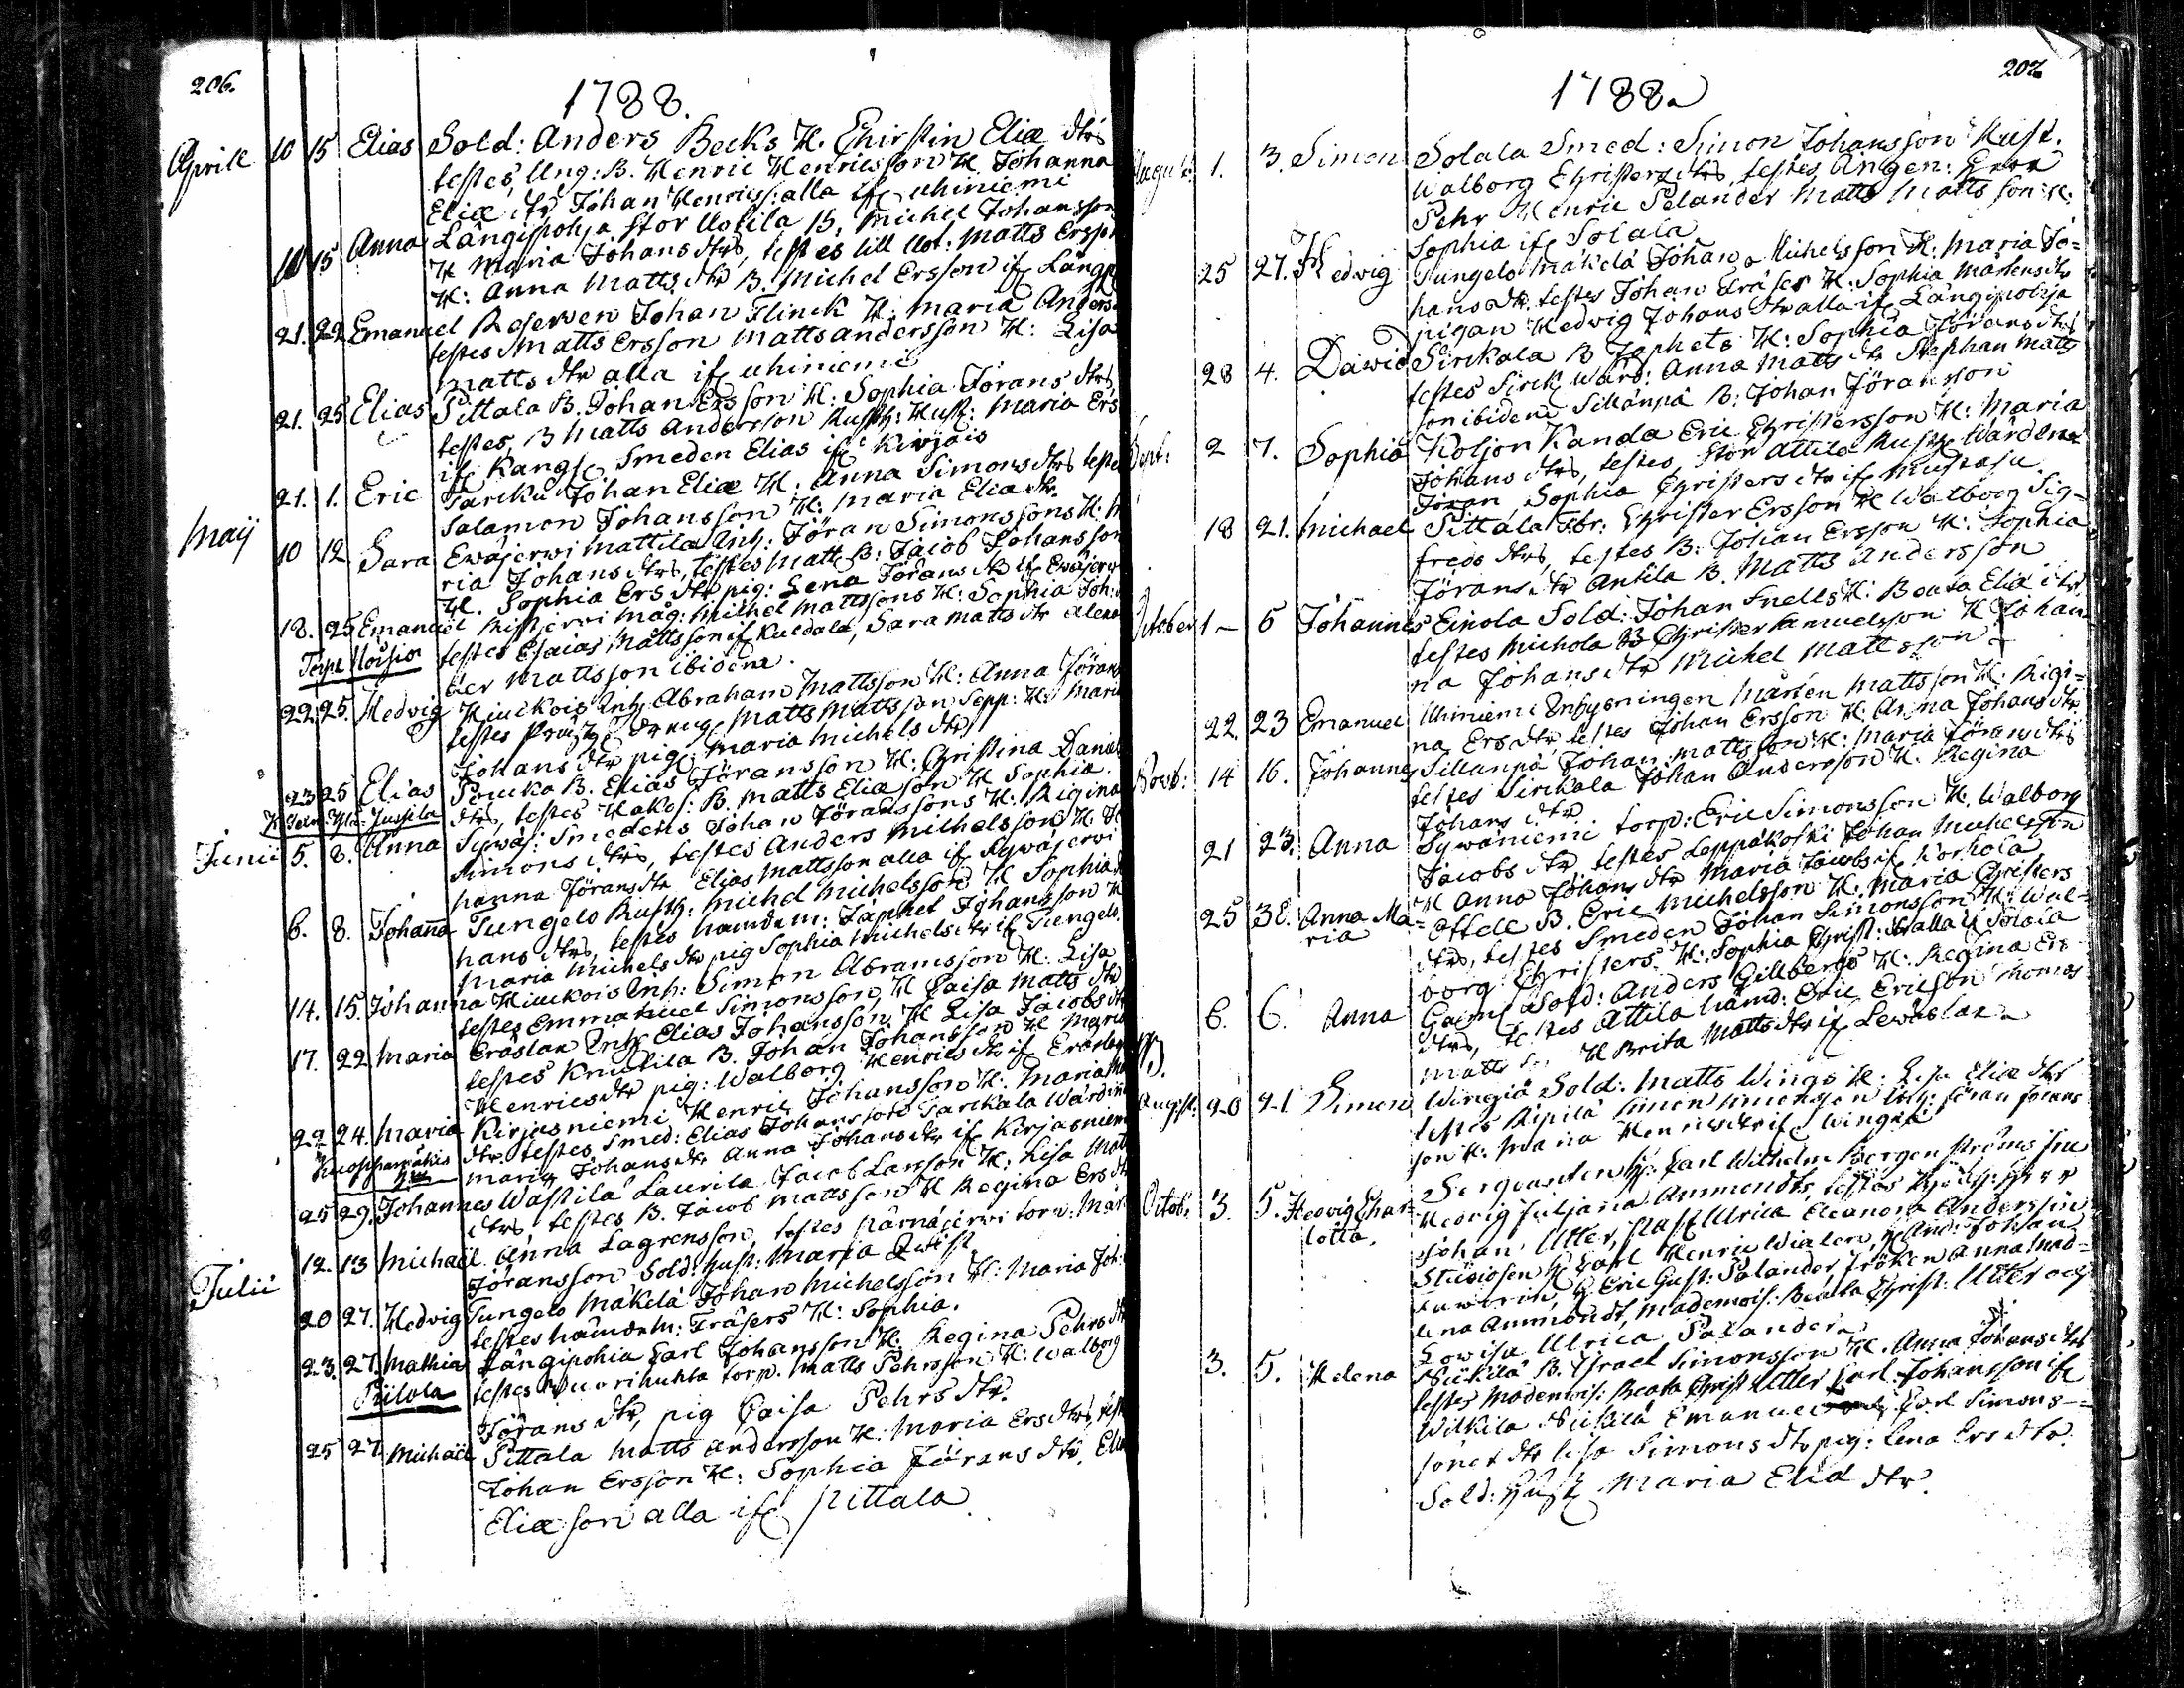 206.
1788.
Aprill 10 15 Elias Sold: Anders Becks H. Chirstin Eliæ dtrs
testes, Ung: B. Henric Henricsson H Johanna
Eliæ dtr Johan Henricss: alla if uhiniemi
10 15 Anna Långipohja Stor Uotila B. Michel Johansson
H Maria Johans dtrs, testes lill Uot: Matts Ersson
H: Anna Matts dtr B. Michel Ersson if Långp
21. 22 Emanuel Reserven Johan Flinck H: Maria Anders
testes Matts Ersson Matts Andersson H: Lisa
Matts dtr alla if uhiniemi
21. 25 Elias Pittala B. Johan Ersson H: Sophia Jörans dtrs
testes, B Matts Andersson Rusth: Hust: Maria Ers
if Kangs Smeden Elias if Kirjais
21. 1. Eric Tarcku Johan Eliæ H. Anna Simons dtrs teste
Salamon Johansson H: Maria Eliæ dtr.
Maij 10 12 Sara Ewäjerwi Mattila Inh: Jöran Simonssons H: M
ria Johans dtrs, testes Matt B: Jacob Johansson
H. Sophia Ers dtr pig: Lena Jörans dtr if Ewäjerw
18. 25 Emanuel Ristjerwi måg: Michel Mattssons H: Sophia Joh:
testes Esaias Mattsson if Kuldala, Sara Matts dtr Alexan
der Mattsson ibidem.
22. 25. Hedvig Hiuckois Inh Abraham Mattsson H: Anna Jörans
testes Präst: dreng Matts Mattsson Sepp: H: Maria
Johans dtr pig: Maria Michels dtr
23 25 Elias Poucka B. Elias Jöransson H: Christina Daniels
dtrs, testes Hakos: B. Matts Eliæson H Sophia
Junii 5. 8. Anna Sywäj: Smedens Johan Jöranssons H: Regina
Simons dtrs, testes Anders Michelsson H Jo
hanna Jörans dtr Elias Mattsson alla if Sywäjerwi
6. 8. Johana Tungelo Rusth: Michel Michelsson H Sophia
hans dtrs, testes namdem: Japhet Johansson H
Maria Michels dtr pig Sophia Michels dtr if Tungelo.
14. 15. Johanna Hiuckois Inh: Simon Abramsson H: Lisa
testes Emmanuel Simonsson, H Caisa Matts dtr
17. 22 Maria Eräslax Inh: Elias Johansson H Lisa Jacobs dtr
testes Knuutila B. Johan Johansson H Maria
Henrics dtr pig: Walborg Henrics dtr if Eräslax
22 24. Maria Kirjasniemi Henric Johansson H: Maria Ma
dtr. testes Smed: Elias Johansson Tarckala Wärdin
Maria Johans dtr Anna Johans dtr if Kirjasniem
25 29. Johannes Wastila Laurila Jacob Larsson H: Lisa Matt
dtrs, testes B. Jacob Mattsson H Regina Ers dtr
12. 13 Michael Anna Lagrensson, testes Kärnäjerwi torp: Mårt
Jöransson Sold: hust: Maria Quist
Julii 20 27. Hedvig Tungelo Mäkelä Johan Michelsson H: Maria Joh:
testes nämdem: Fräsers H: Sophia.
23. 27. Mathias Långipohia Carl Johansson H. Regina Pehrs dtr
testes Wuorihuhta torp. Matts Pehrsson H: Walborg
Jörans dtr, pig Caisa Pehrs dtr.
25 27 Michaël Pittala Matts Andersson H: Maria Ers dtrs, test
Johan Ersson H: Sophia Jörans dtr. Elia
Eliæ son alla if Pittala
207.
1788.
August: 1. 3. Simon Solala Smed: Simon Johansson Hust.
Walborg Christers dtrs, testes Ängen:
Pehr Henric Pelander Matts Mattsson H:
Sophia if Solala
25 27. Hedwig Tungelo Mäkelä Johan Michelsson H: Maria Jo=
hans dtr. testes Johan Fräser H. Sophia Mårtens dtr
pigan Hedwig Johans dtr alla if Långipohja
28 4. Dawid Sirckala B Japhets H: Sophia Jörans dtrs
testes Sirck Wärd: Anna Matts dtr Stephan Matts
son ibidem Sillanpä B: Johan Jöransson
Sept: 2 7. Sophia Koljon Kanda Eric Christersson H: Maria
Johans dtrs, testes, Stor Attila Rusth Wärden
Jöran, Sophia Christers dtr if Mustasu
18 21. Michael Pittala Sbr: Christer Ersson H Walborg Sig=
freds dtrs, testes B: Johan Ersson H: Sophia
Jörans dtr Antila B. Matts Andersson
October 1 5 Johannes Einola Sold: Johan Snells H: Beata Eliæ dtr
testes Michola B Christer Samuelsson H Johan
na Johans dtr Michel Mattsson
22. 23 Emanuel Uhiniemi Inhysningen Mårten Mattsson H: Regi=
na Ers dtr testes Johan Ersson H: Anna Johans dtr
Novb: 14 16. Johannes Sillanpä Johan Mattsson H: Maria Jörans dtrs
testes Sirckala Johan Andersson H. Regina
Johans dtr
21 23. Anna Sywäniemi torp: Eric Simonsson H. Walborg
Jacobs dtr. testes Leppäkoski Johan Michelsson
H Anna Johans dtr Maria Jacobs if Korhola
25 30. Anna Ma= Ottell B. Eric Michelsson H: Maria Christers
ria dtrs, testes Smeden Johan Simonsson H: Wal=
borg Christers H: Sophia Christ: dtr alla if Solala
6. 6. Anna Sold: Anders Gillbergs H: Regina Ers
dtrs, testes Attila nämd: Eric Ericsson Thomas
Matts H Brita Matts dtr if Lewäslax
August: 20 21 Simon Wingiä Sold: Matts Wings H. Lisa Eliæ dtr
testes Ripilä Simon Simonsson Jöran Jörans
son H: Maria Henrics dtr if Wingiä
Sergeanten H: Carl Wilhelm Bergenströms fru
Octob: 3. 5. Hedvig Char Hedvig Juliana Ammondts, testes
lotta. Johan Utter, Ulrica Eleanora Andersin
Studiosen H Carl Henric Wialen, Johan
H Eric Gust: Palander fröken Anna Mad=
lena Ammondt, Mademois: Beata Christ: Utter och
Lowisa Ulrica Palander
3. 5. Helena Nickilä B. Israel Simonsson H. Anna Johans dtrs
testes Mademois: Beata Christ Utter Carl Johansson if
Wilkila Nickilä Emanuel Carl Simons=
sönet dtr lisa Simons dtr pig: Lena Ers dtr.
Sold: Hust Maria Eliæ dtr.